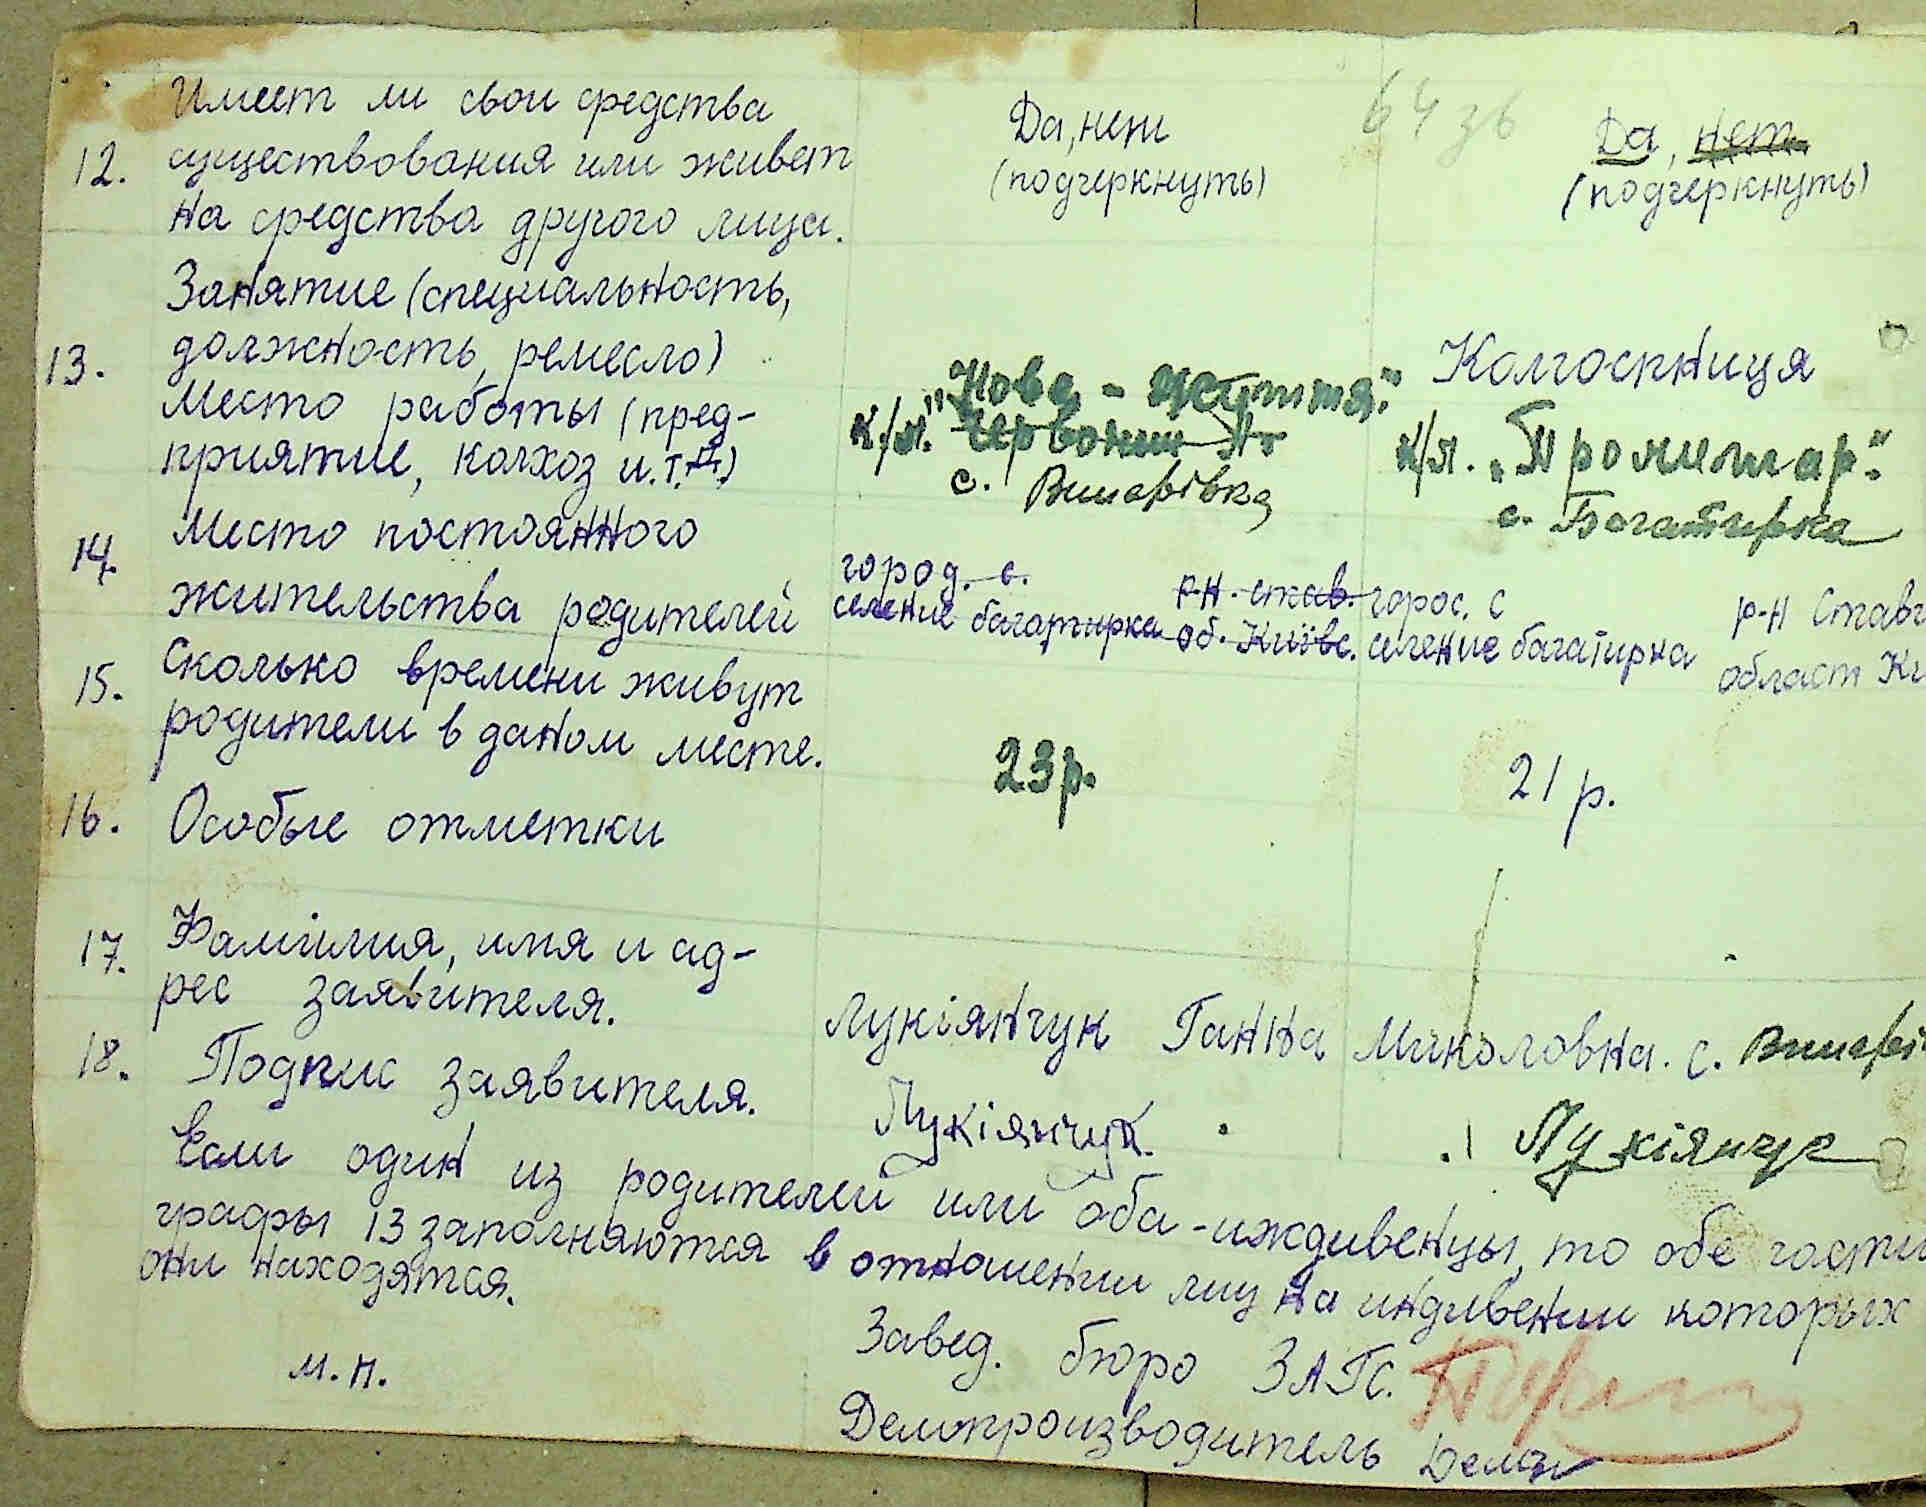 Имеет ли свои средства
12. существования или живет
на средства другого лица.
Да, нет
(подчеркнуть)
64 зв
Да, нет
(подчеркнуть)
Занятие (специальность,
13. должность, ремесло)
Место работы (пред-
приятие, колхоз и.т.д.)
"Нове - життя"
к/г.
с. Винарівка
Колгоспниця
к/г. "Пролетар"
с. Богатирка
14. Место постоянного
жительства родителей
город. с. р-н. став.
селение багатирка об. Київс.
горос. с р-н Став
селение багатирка област Ки
15. Сколько времени живут
родители в даном месте.
23 р.
21 р.
16. Особые отметки
17. Фамілия, имя и ад-
рес заявителя.
Лукіянчук Ганна Миколовна. с. Винарі
18. Подпис заявителя.
Лукіянчук.
Лукіянчук
Если один из родителей или оба - иждивенцы, то обе части
графы 13 заполняются в отношении лиц на индивении которых
они находятся.
м.п.
Завед. бюро ЗАГС.
Делопроизводитель